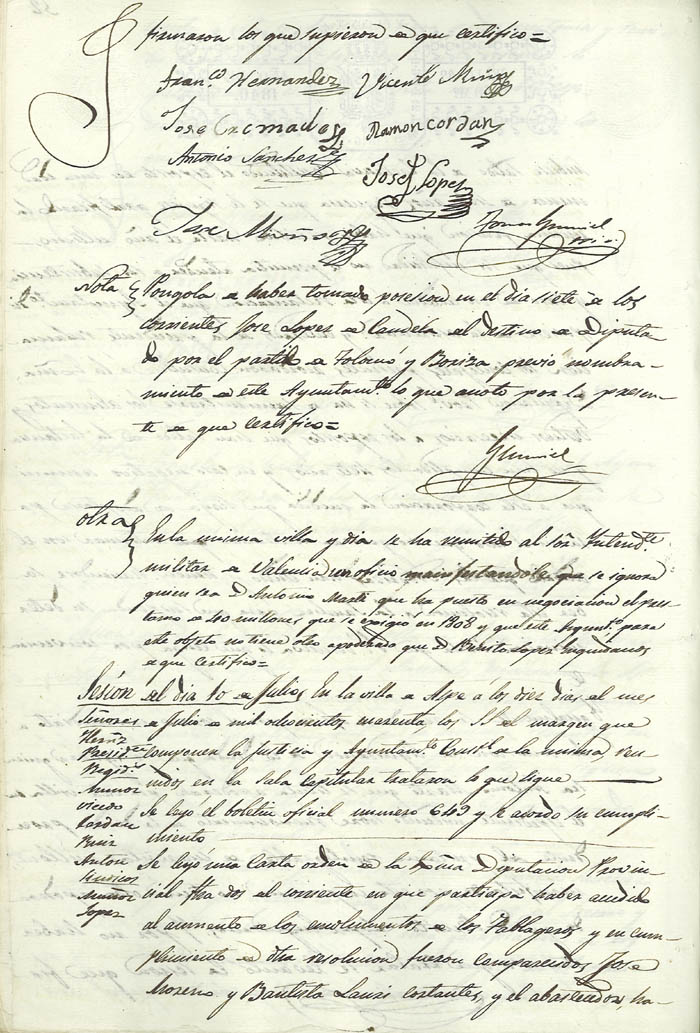 firmaron los que supieron de que certifico=
Fran.co Hernandez Vicente Muñoz
Jose Cremades Ramon cordan
Antonio Sanchez
Josef Lopez
Jose Muñoz Tomas Gumiel
Nota Pongola de haber tomado posesion en el dia siete de los
corrientes Jose Lopez de Candela del destino de Diputa-
do por el partido de y previo nombra-
miento de este Ayuntam.to lo que anoto por la presen-
te de que certifico=
Gumiel
otra En la misma villa y dia se ha remitido al Sor. Intend.te
militar de Valencia un oficio manifestandole que se ignora
quien sea D. Antonio Marti que ha puesto en negociacion el pres-
tamo de 40 millones que se exigió en 1808 y que este Ayunt.o para
este objeto no tiene otro apoderado que D. Benito Lopez
de que Certifico=
Sesión del dia 10 de Julio En la villa de Aspe á los diez dias del mes
Señores de Julio de mil ochocientos cuarenta, los SS. del margen que
Hernz
Presid.te componen la Justicia y Ayuntam.to Const.l de la misma, reu-
Regid.s
Muñoz nidos en la sala capitular trataron lo que sigue
vicedo Se leyó el boletin oficial numero 649 y se acordo su cumpli-
Cordan
Ruiz miento
Anton Se leyó una Carta orden de la Exma Diputacion Provin-
Sindicos
Muñoz cial fha dos del corriente en que participa haber accedido
Lopez al aumento de los emolumentos de los y en cum-
plimiento de otra resolucion fueron comparecidos Jose
Moreno y Bautista cortantes, y el abastecedor, ha-